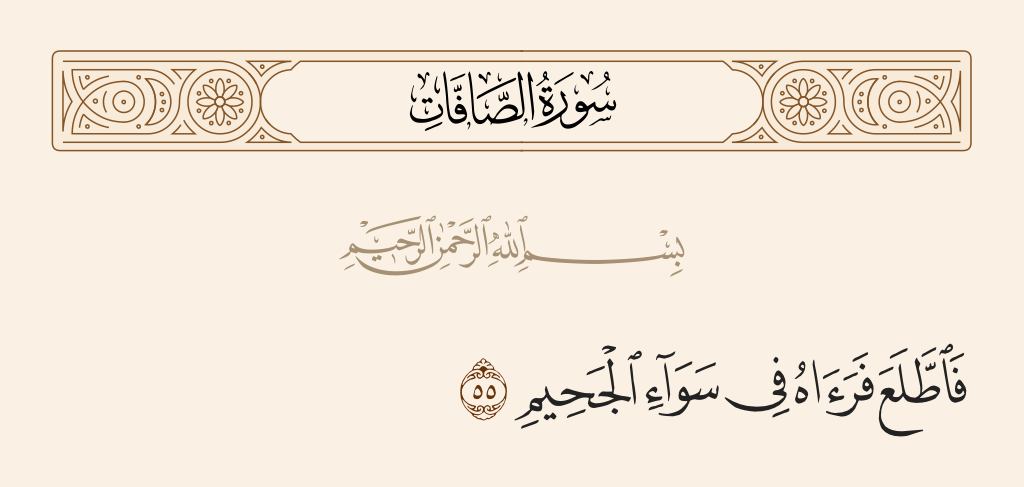 سُورَةُ الصَّافَّاتِ
بِسْمِ ٱللَّهِ ٱلرَّحْمَٰنِ ٱلرَّحِيمِ
فَٱطَّلَعَ فَرَءَاهُ فِى سَوَآءِ ٱلْجَحِيمِ ٥٥